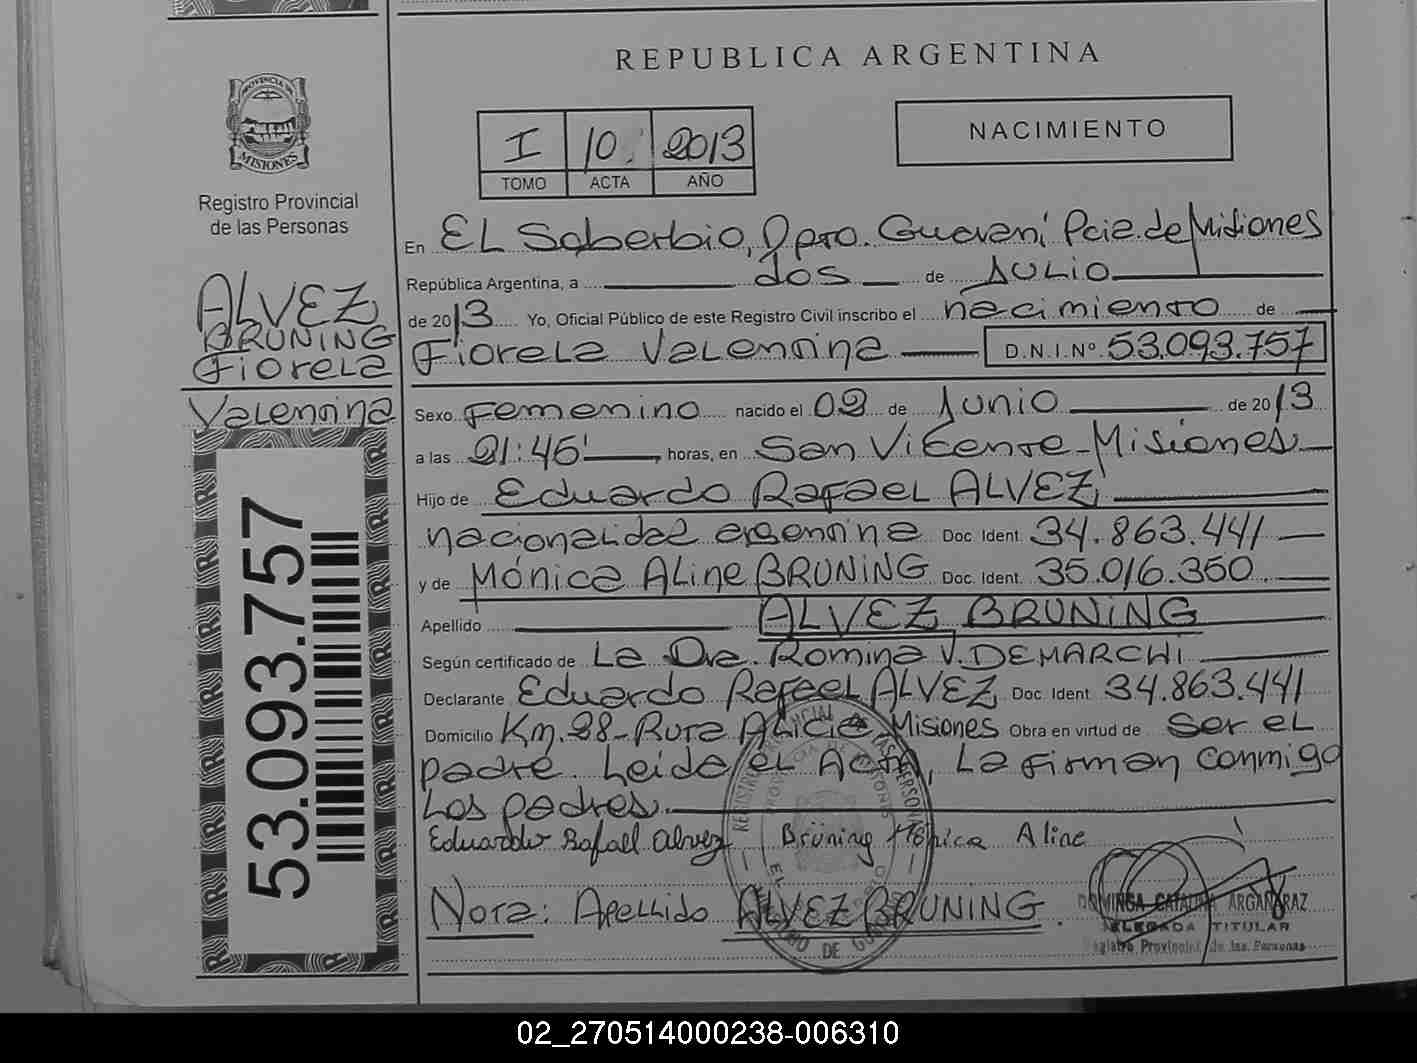 REPUBLICA ARGENTINA
PROVINCIA DE
MISIONES
Registro Provincial
de las Personas
I 10 2013
TOMO ACTA AÑO
NACIMIENTO
En EL Soberbio, Dpto. Guaraní Pcia. de Misiones
República Argentina, a dos de Julio
de 2013 Yo, Oficial Público de este Registro Civil inscribo el nacimiento de
Fiorela Valentina D.N.I.Nº 53.093.757
ALVEZ
BRUNING
Fiorela
Valentina
Sexo Femenino nacido el 02 de Junio de 2013
a las 21:45' horas, en San Vicente - Misiones
Hijo de Eduardo Rafael ALVEZ
nacionalidad argentina Doc Ident. 34.863.441
y de Mónica Aline BRUNING Doc. Ident. 35.016.350
Apellido ALVEZ BRUNING
Según certificado de La Dra. Romina V. DEMARCHI
Declarante Eduardo Rafael ALVEZ Doc Ident 34.863.441
Domicilio Km. 28 - Ruta Alicia Misiones Obra en virtud de Ser el
padre. Leida el Acta, La firman conmigo
Los padres.
Eduardo Rafael Alvez Brüning Mónica Aline
Nota: Apellido ALVEZ BRUNING.
DOMINGA CATALINA ARGAÑARAZ
DELEGADA TITULAR
Registro Provincial de las Personas
53.093.757
02_270514000238-006310